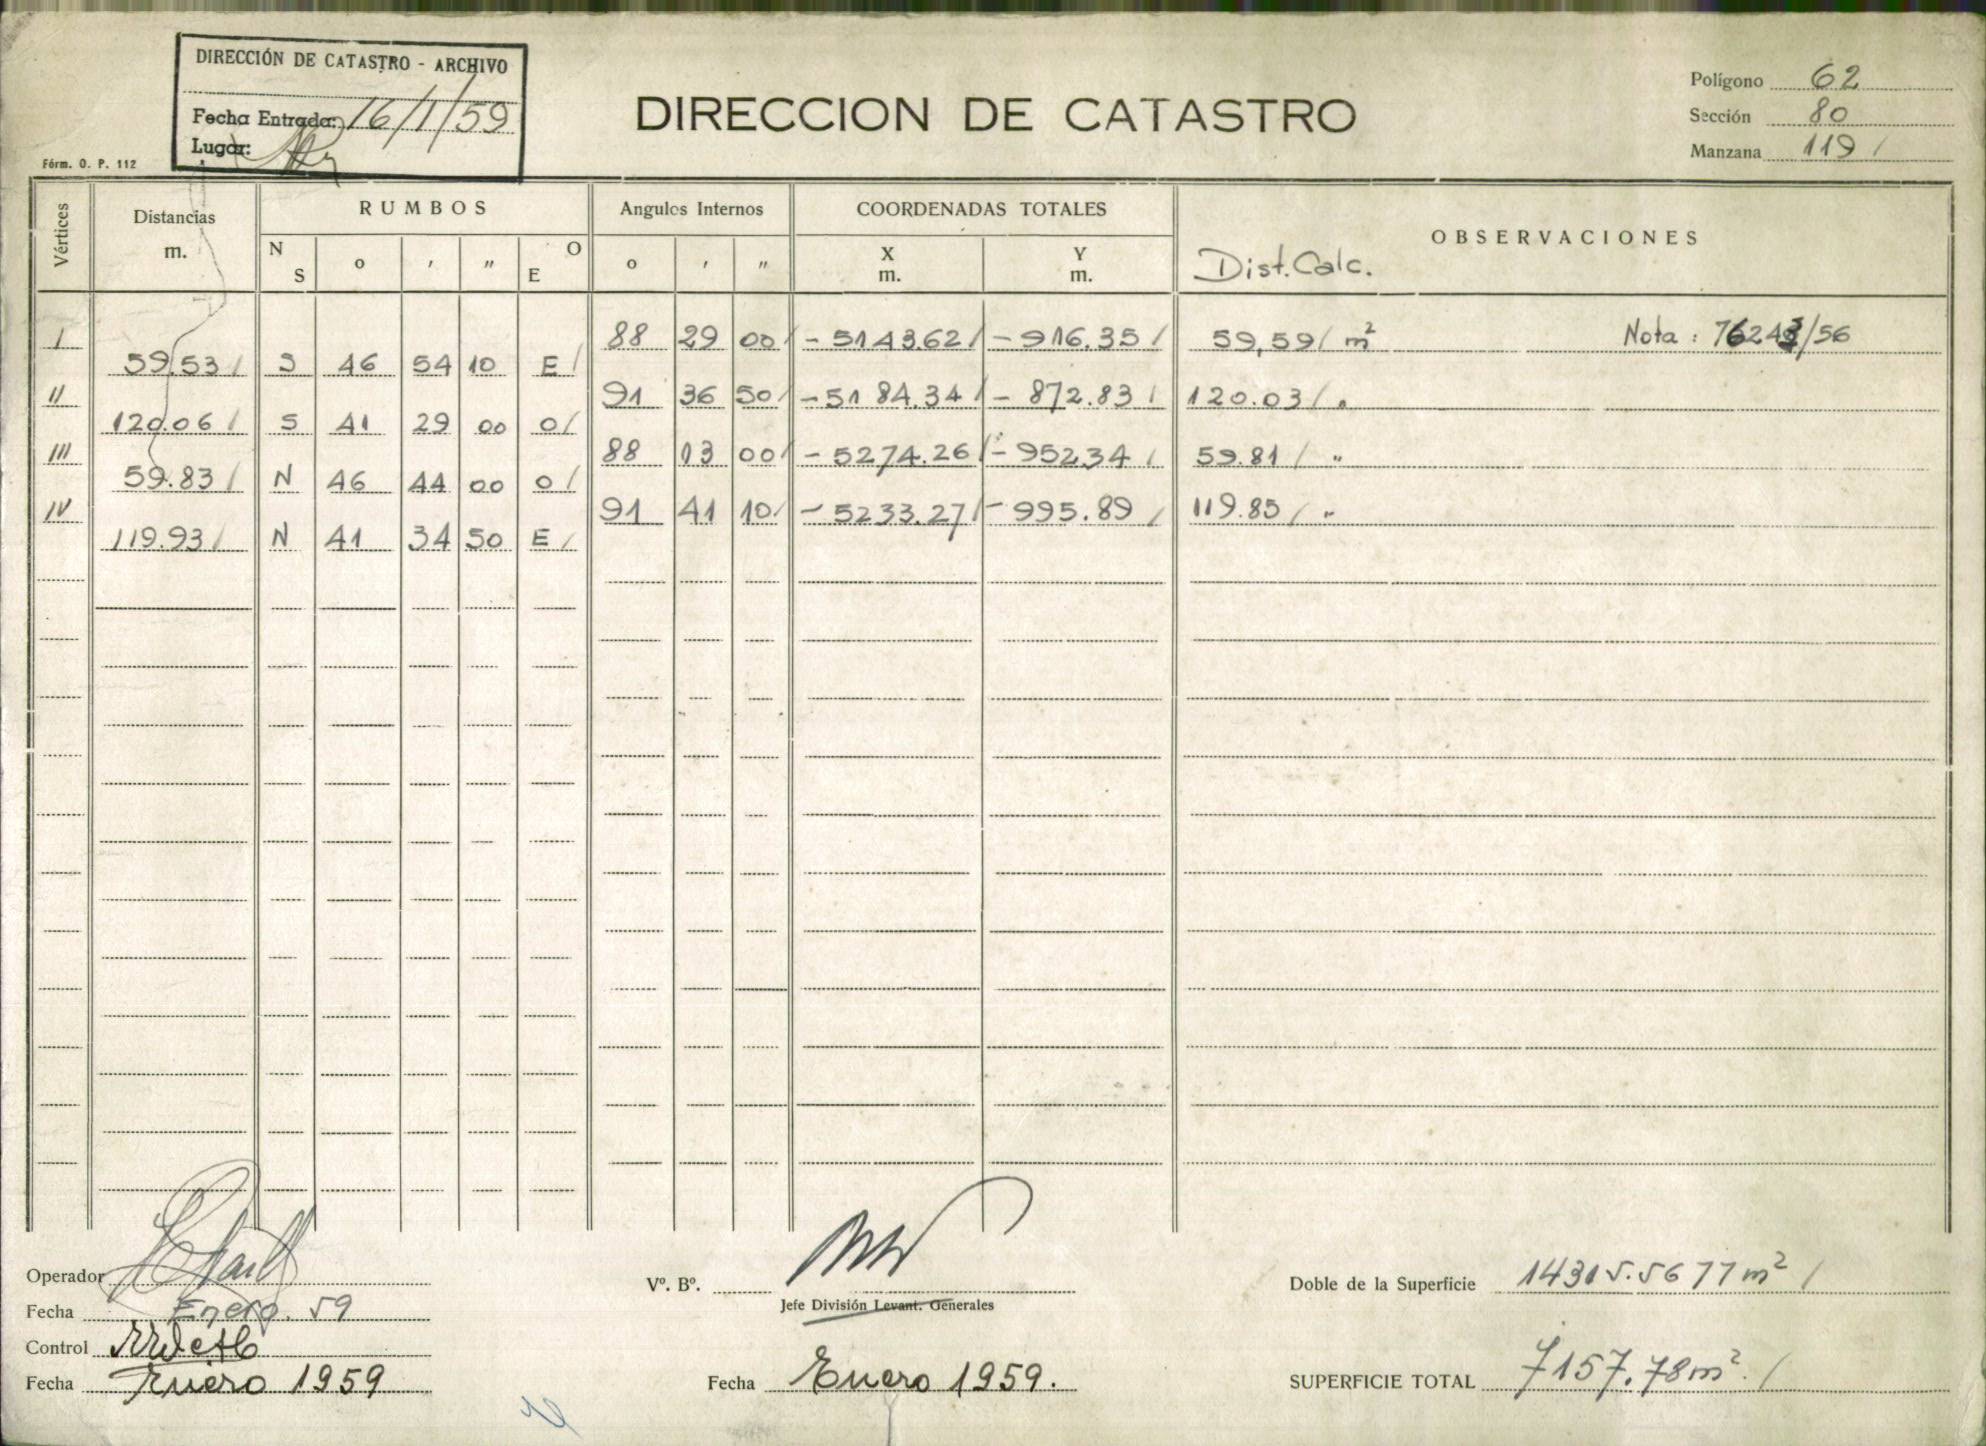 DIRECCIÓN DE CATASTRO - ARCHIVO
Fecha Entrada: 16/1/59
Lugar:
Fórm. O. P. 112
DIRECCION DE CATASTRO
Polígono 62
Sección 80
Manzana 119 /
Vértices Distancias m. RUMBOS Angulos Internos COORDENADAS TOTALES OBSERVACIONES
N S o ' " O E o ' " X m. Y m. Dist. Calc.
I 88 29 00/ - 5143.62/ - 916.35/ 59,59/ m² Nota: 76243/56
59.53/ S 46 54 10 E/
II 91 36 50/ - 5184.34/ - 872.83/ 120.03/ "
120.06/ S 41 29 00 O/
III 88 13 00/ - 5274.26/ - 952.34/ 59.81/ "
59.83/ N 46 44 00 O/
IV 91 41 10/ - 5233.27/ - 995.89/ 119.85/ "
119.93/ N 41 34 50 E/
Operador
Fecha Enero. 59
Control
Fecha Enero 1959
Vº. Bº.
Jefe División Levant. Generales
Fecha Enero 1959.
Doble de la Superficie 14315.5677 m² /
SUPERFICIE TOTAL 7157.78 m². /